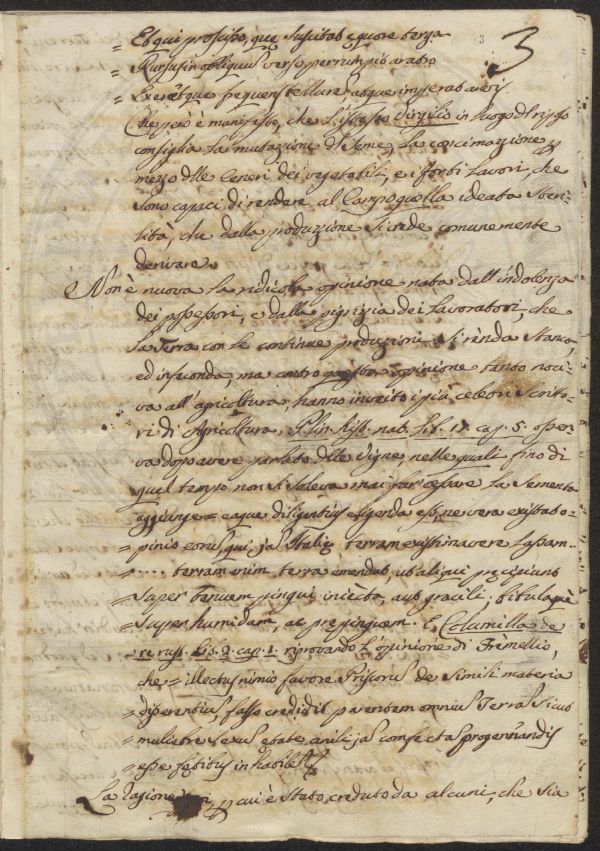 3
= Et qui proscisso, quę suscitat ęquore terga
= Rursus in obliquus verso perrumpit aratro
= Exercetque frequens tellure, atque imperat arvis.
Che però è manifesto, che l'istesso Virgilio in luogo di riposo
consiglia la mutazione di seme, la concimazione p
mezzo dlle Ceneri dei vegetabili, e i forti lavori, che
sono capaci di rendere al Campo quella ideata steri-
lità, che dalla produzione si crede comunemente
derivare.
Non è nuova la ridicola opinione nata dall'indolenza
dei possessori, e dalla pigrizia dei lavoratori, che
la Terra con le continue produzioni si renda stanca,
ed infeconda, ma contro questa opinione tanto noci-
va all'agricoltura, hanno inveito i più celebri scritto-
ri di Agricoltura. Plin. Ist. nat. Lib. 17. cap. 5. osser-
va dopo avere parlato dlle vigne nelle quali fino di
quel tempo non si soleva mai far cessare la sementa
aggiunge = eaque diligentius exigenda est, ne vera existat o-
= pinio eorus, qui jas Italię terram existimavere lassam..
= ..... terram enim terra emendat, ut aliqui pręcipiunt
= super tenuem pingui iniecta, aut gracili bibulaque
= super humidam, ac prepinguem. E Columella de
re rust. Lib. 2. cap. 1. riprovando l'opinione di Tremellio,
che = illectus nimio favore Priscorus de simili materia
= diserentius, falso credidit parentem omnius Terras, sicut
= muliebre sexus ętate anili jas confectas progenerandis
= esse fętibus inhabiles
La ragione per cui è stato creduto da alcuni, che sia